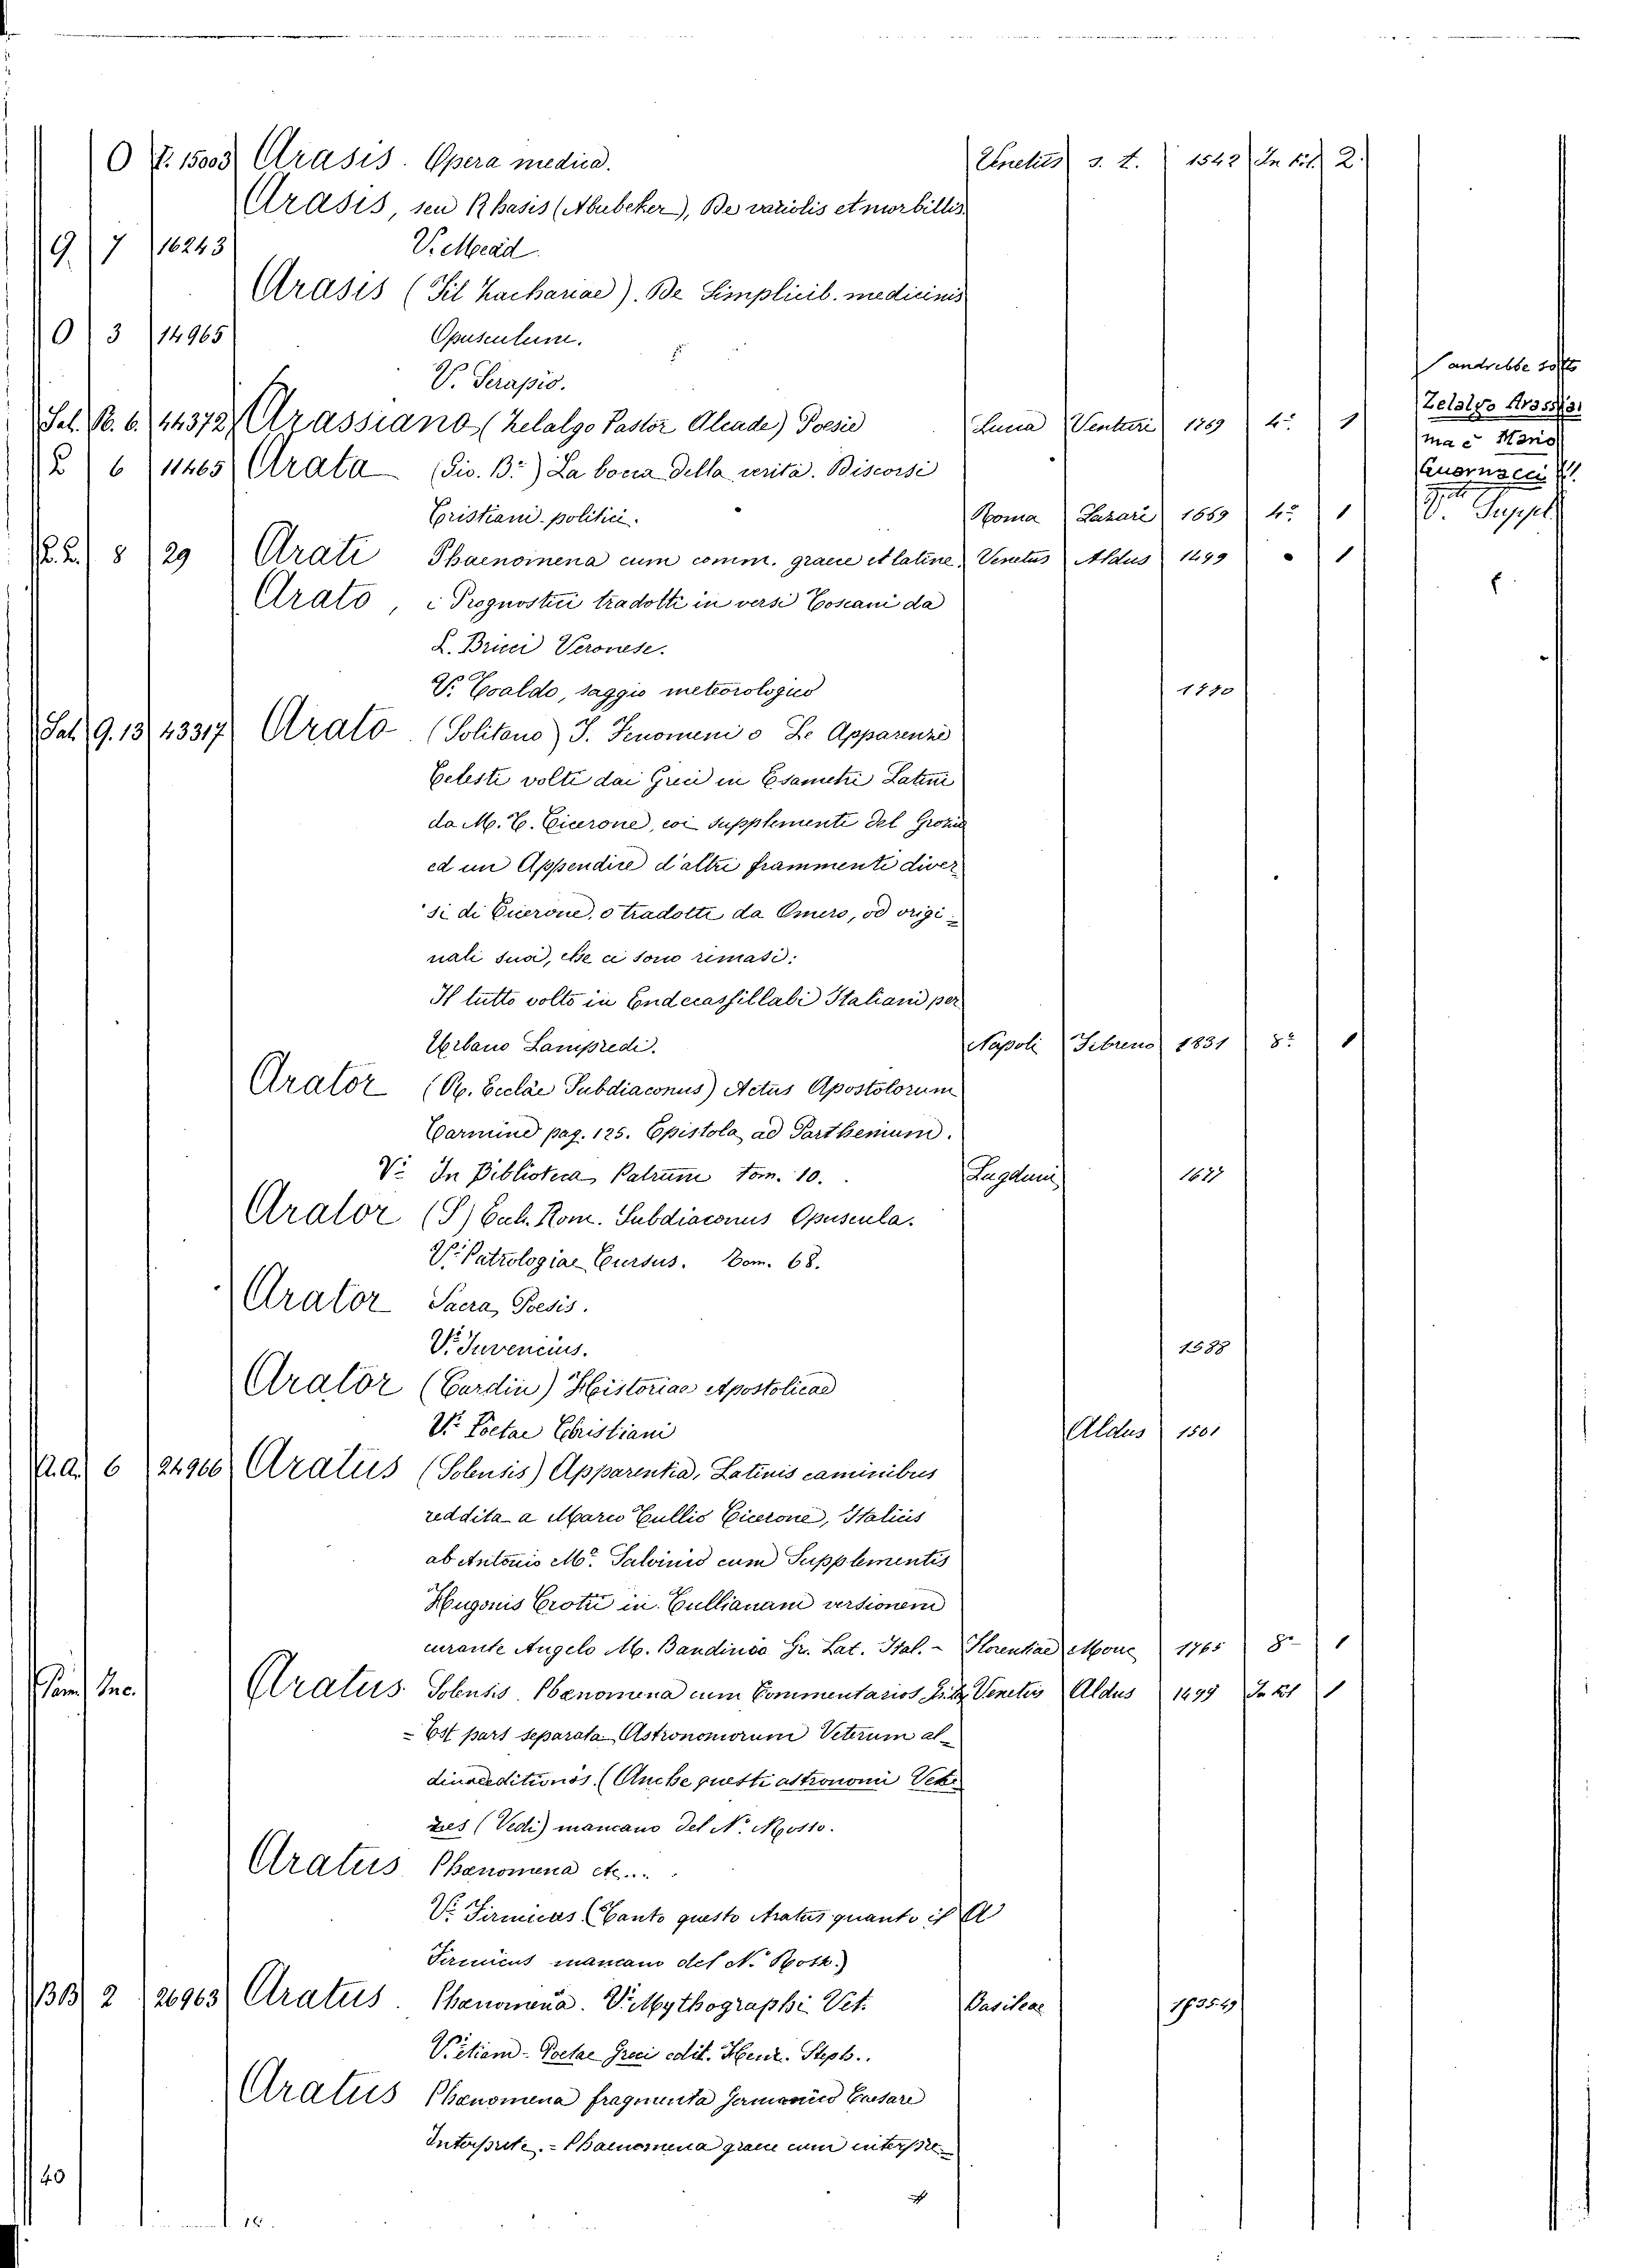 O V. 15003 Arasis. Opera medica. Venetiis s. t. 1542 In fol. 2.
Arasis, seu Rhasis (Abubeker), De variolis et morbillis
9. 7 16243 V. Mead.
Arasis (Fil Zachariae). De Simplicib. medicinis
O 3 14965 Opusculum.
V. Serapio.
Sal. N. 6. 44372 Arassiano (Zelalgo Pastor Alcade) Poesie Lucca Venturi 1769 4º 1
6 11465 Arata (Gio. Bª) La bocca della verità. Discorsi
Cristiani-politici. Roma Lazari 1669 4º 1
8 29 Arati Phaenomena cum comm. graece et latine. Venetus Aldus 1499 " 1
Arato, i Prognostici tradotti in versi Toscani da
L. Bricci Veronese.
V. Toaldo, saggio meteorologico
Sal. 9. 13 43317 Arato (Solitano) I. Fenomeni o Le Apparenze
Celesti volti dai Greci in Esametri Latini
da M. T. Cicerone, coi supplementi del Grozio
ed un Appendice d'altri frammenti diver
si di Cicerone, o tradotti da Omero, od origi-
nali suoi, che ci sono rimasi:
Il tutto volto in Endecassillabi Italiani per
Urbano Lampredi. Napoli Tibreno 1831 8º 1
Arator (R. Eccláe Subdiaconus) Actus Apostolorum
Carmine pag. 125. Epistola ad Parthenium.
V. In Biblioteca Patrum tom. 10. Lugduni 1677
Arator (S) Eccl. Rom. Subdiaconus Opuscula.
V. Patrologiae Cursus. Tom. 68.
Arator Sacra Poesis.
V. Juvencius. 1588
Arator (Cardin) Historiae Apostolicae
V. Poetae Christiani Aldus 1501
A.A. 6 24966 Aratus (Solensis) Apparentia, Latinis caminibus
reddita a Marco Tullio Cicerone, Italicis
ab Antonio Mª. Salvinio cum Supplementis
Hugonis Grotii in Tullianam versionem
curante Angelo M. Bandinio Gr. Lat. Ital. - Florentiae Moüc 1765 8º 1
Inc. Aratus Solensis. Phenomena cum Commentarios Venetiis Aldus 1499 In fol 1
- Est pars separata Astronomorum Veterum al-
dinae editionis. (Anche questi astronomi Vete
res (Vedi) mancano del N. Posto.
Aratus Phaenomena etc....
V. Firmicus (Tanto questo Aratus quanto il
Firmicus mancano del N. Posto.)
BB 2 26963 Aratus. Phanomena. V. Mythographi Vet. Basileae
V. etiam - Poetae Greci edit. Henr. Steph..
Aratus Phaenomena fragmenta Germanico Caesare
Interprete. - Phaenomena graece cum interpre
40
andrebbe sotto
Zelalgo Arassia
ma è Mario
Guarnacci
V. Suppl